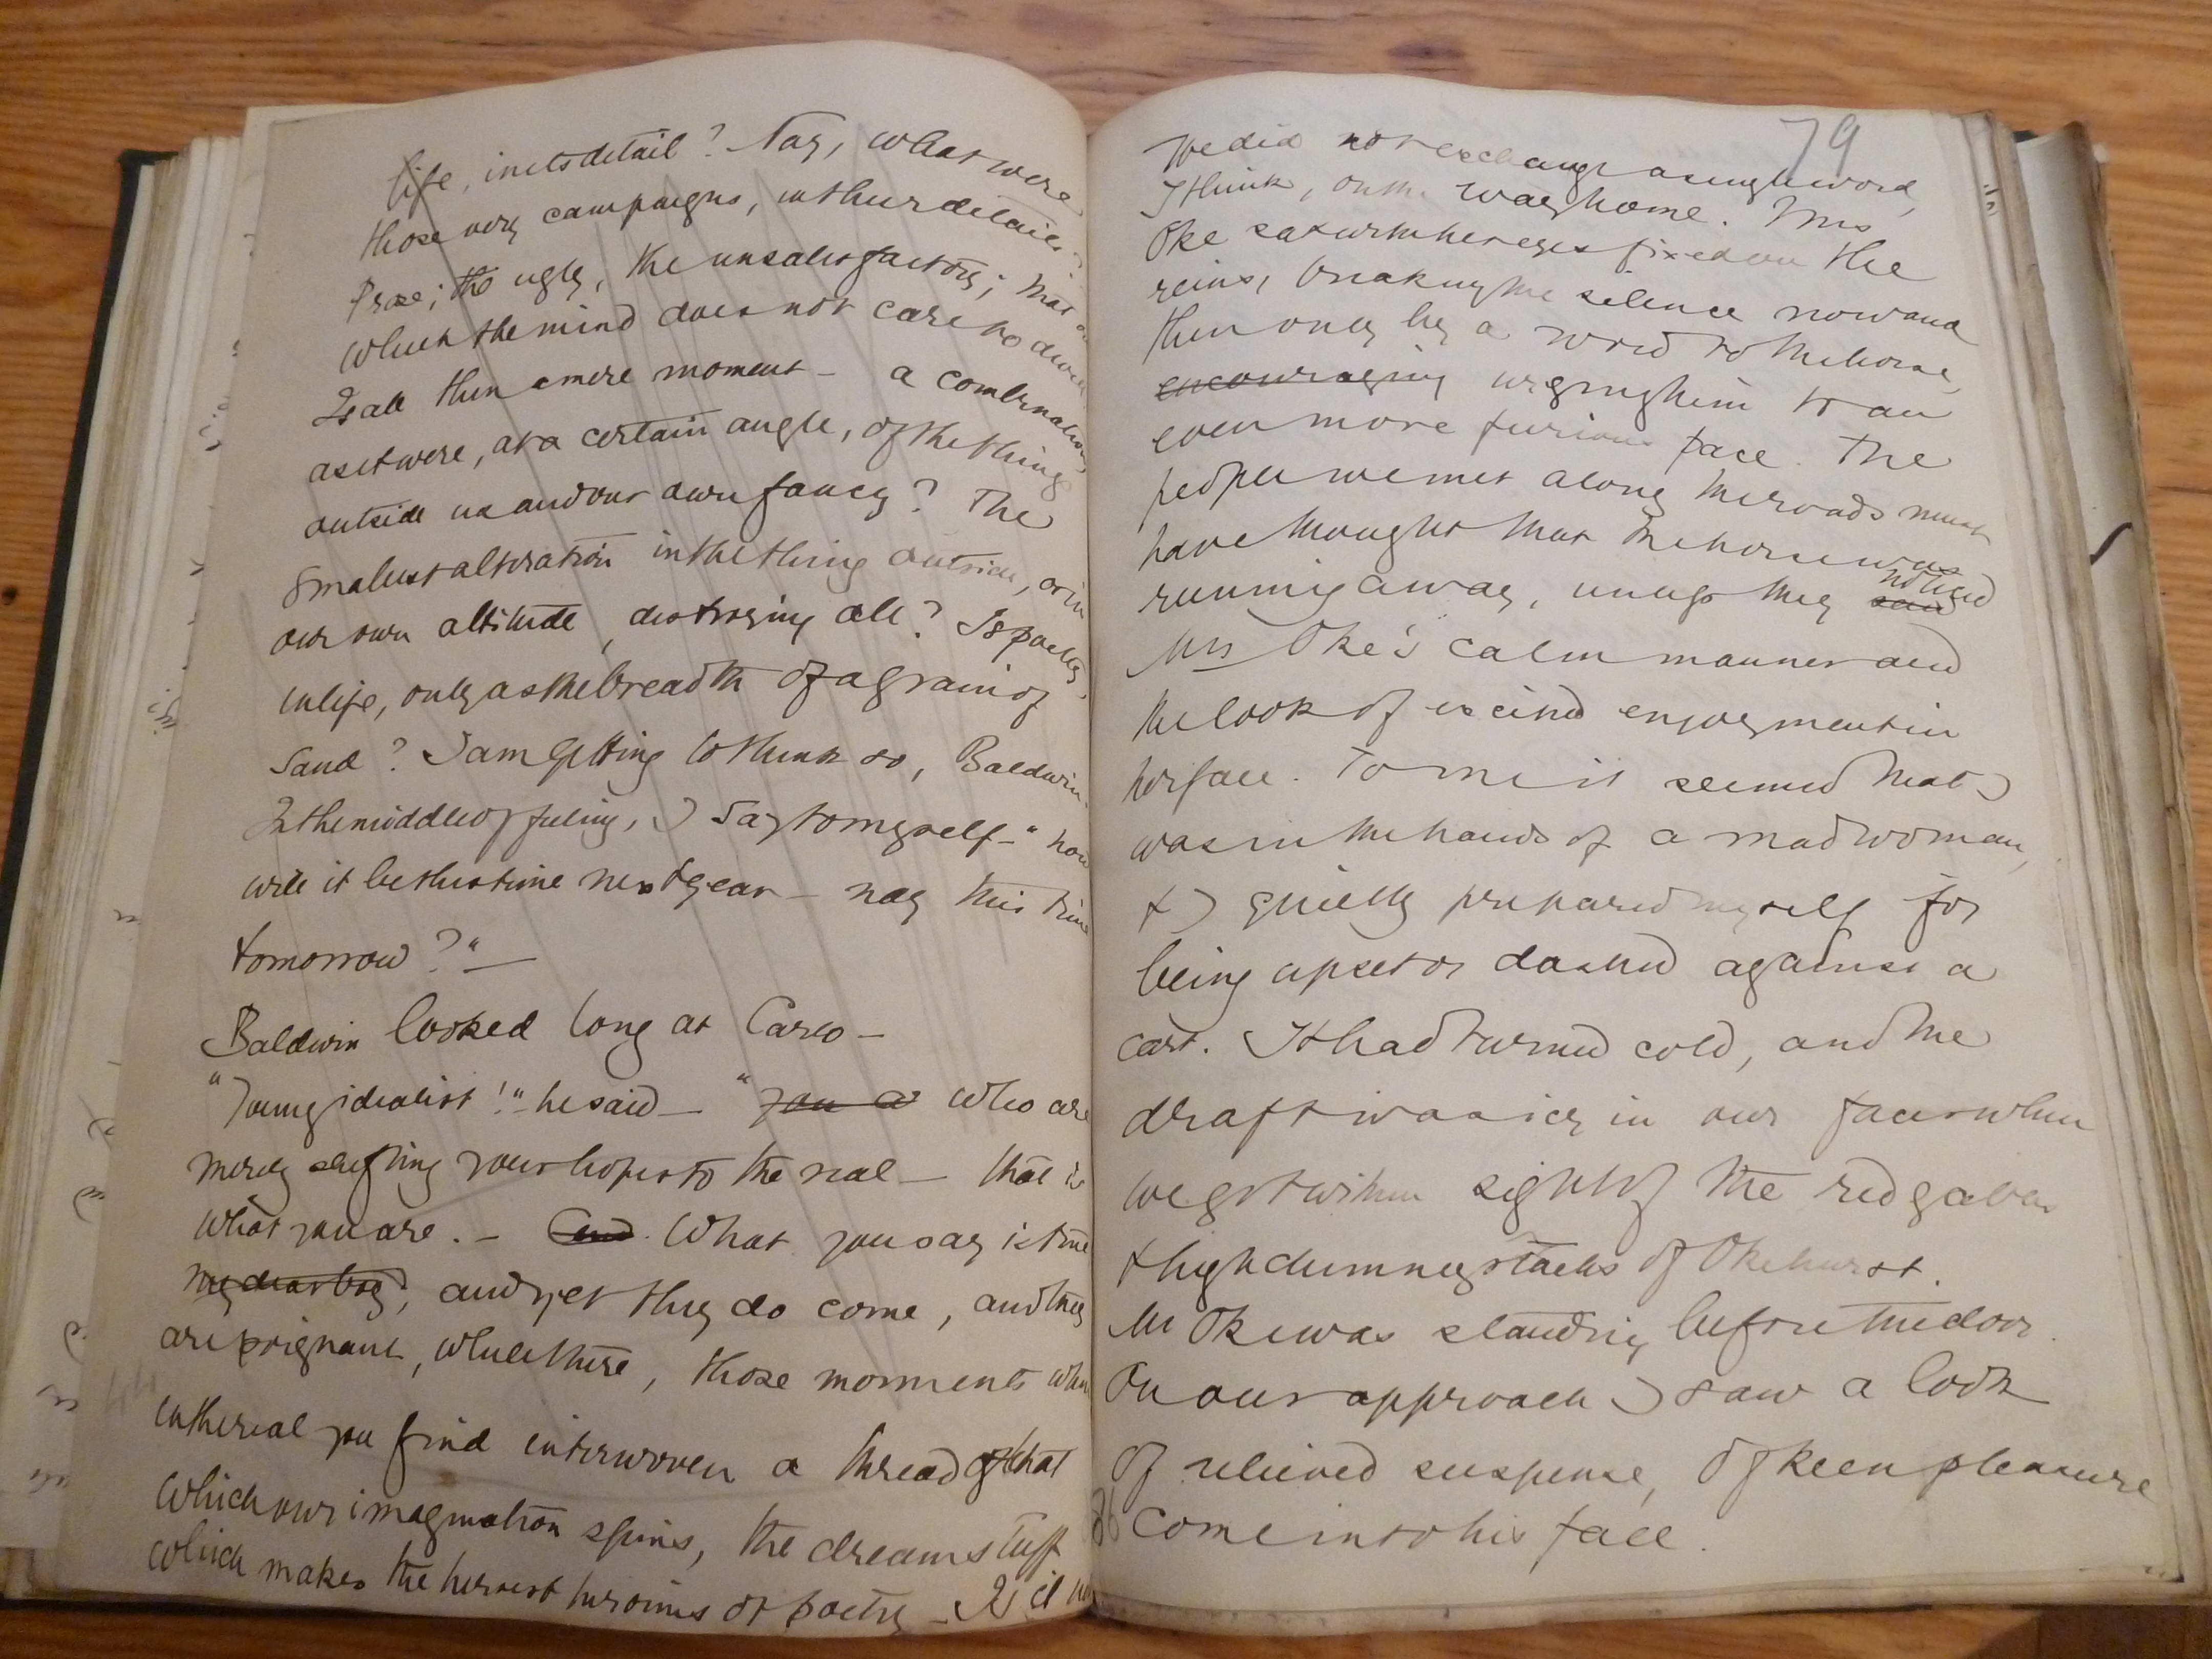 life, in its detail? Nay, what were
those very campaigns, in their details?
Prose; the ugly, the unsatisfactory; that on
which the mind does not care to dwell
Is all then a mere moment — a combination
as it were, at a certain angle, of the thing
outside us and our own fancy? The
smallest alteration in the thing outside, or in
our own attitude, destroying all? Is poetry,
in life, only as the breadth of a grain of
sand? I am getting to think so, Baldwin.
In the middle of feeling, I say to myself — "how
will it be this time next year — nay this time
tomorrow?" —
Baldwin looked long at Carlo —
"Young idealist!" — he said — "you a who are
merely shifting your hopes to the real — that is
what you are. — And. What you say is true
my dear boy, and yet they do come, and they
are poignant, while there, those moments when
in the real you find interwoven a thread of that
which our imagination spins, the dream stuff
which makes the heroes & heroines of poetry — Is it
79
We did not exchange a single word,
I think, on the way home. Mrs
Oke sat with her eyes fixed on the
reins, breaking the silence now and
then only by a word to the horse,
encouraging urging him to an
even more furious pace. The
people we met along the roads must
have thought that the horse was
running away, unless they saw noticed
Mrs Oke's calm manner and
the look of excited enjoyment in
her face. To me it seemed that I
was in the hands of a mad woman,
& I quietly prepared myself for
being upset or dashed against a
cart. It had turned cold, and the
draft was icy in our faces when
we got within sight of the red gables
& high chimney stacks of Okehurst.
Mr Oke was standing before the door.
On our approach I saw a look
of relieved suspense, of keen pleasure
come into his face.
86